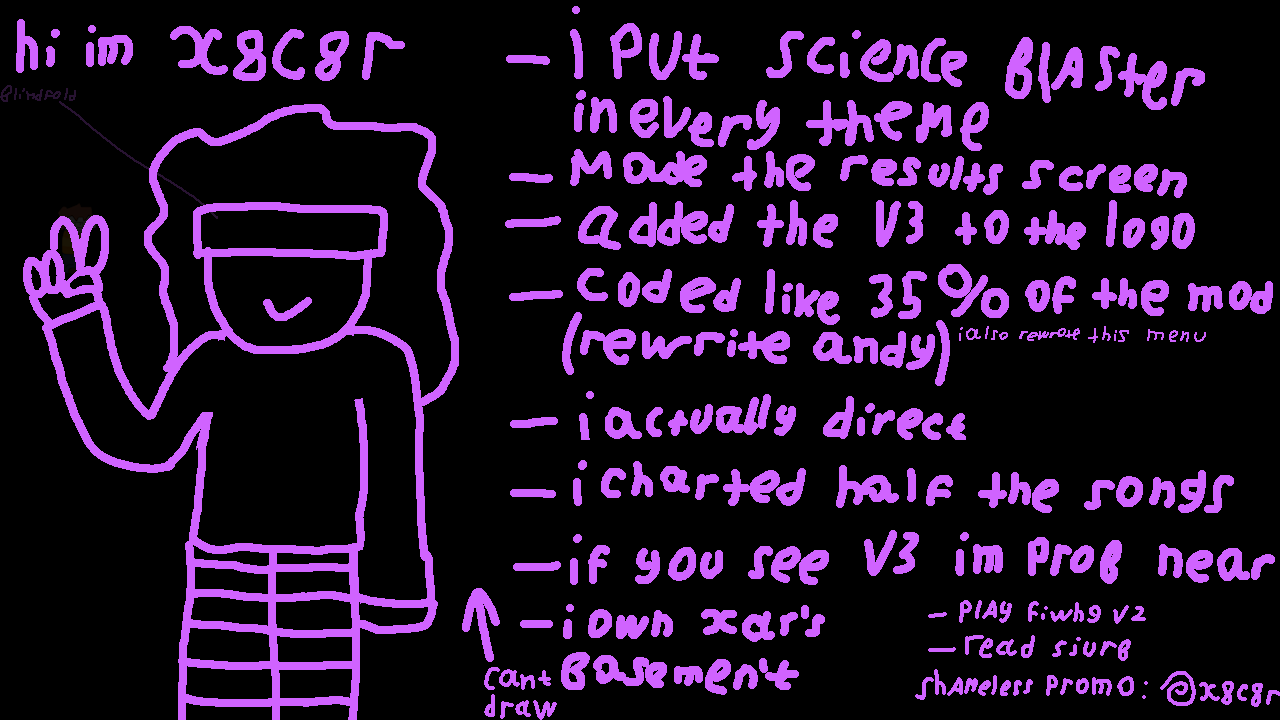 hi im x8c8r
Blindfold
- i PUt science BlAster
in every theme
- Made the results screen
- added the V3 to the logo
- coded like 35% of the mod
(rewrite andy)
i also rewrote this menu
- i actually direct
- i charted half the songs
- if you see V3 im proB near
- i own xar's
Basemen't
cant
draw
- PlAy fiwhg v2
- read sjurB
shAmeless promo: @x8c8r